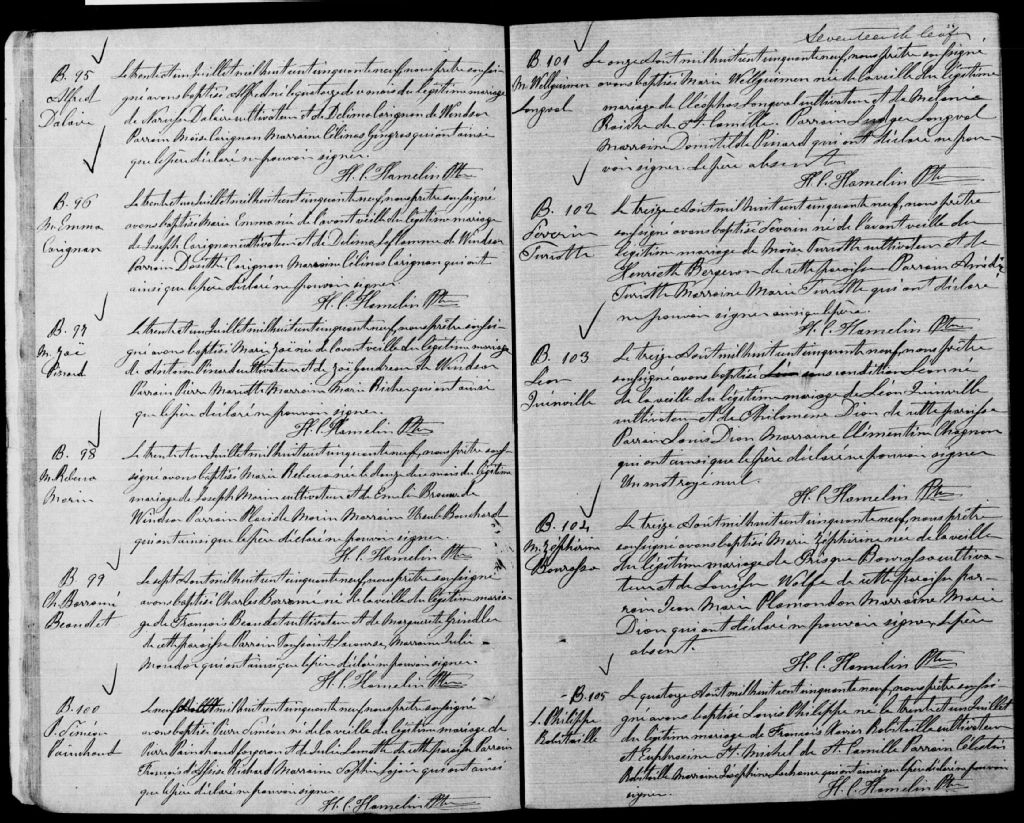 B. 95
Alfred
Dalaire
Le trente et un Juillet mil huit cent cinquante neuf, nous prêtre soussi-
gné avons baptisé Alfred né le quatorze de ce mois du légitime mariage
de Narcisse Dalaire cultivateur et de Delima Corignan de Windsor
Parrain Moïse Corignan Marraine Célina Gingras qui ont ainsi
que le père déclaré ne pouvoir signer.
H. C. Hamelin Ptre
B. 96
M. Emma
Corignan
Le trente et un Juillet mil huit cent cinquante neuf, nous prêtre soussigné
avons baptisé Marie Emma née de l'avant veille du légitime mariage
de Joseph Corignan cultivateur et de Delima Laflamme de Windsor
Parrain Corignan Marraine Célina Corignan qui ont
ainsi que le père déclaré ne pouvoir signer.
H. C. Hamelin Ptre
B. 97
M. Zoë
Pinard
Le trente et un Juillet mil huit cent cinquante neuf, nous prêtre soussi-
gné avons baptisé Marie Zoë née de l'avant veille du légitime mariage
de Antoine Pinard cultivateur et de Zoé Goudreau de Windsor
Parrain Pierre Mariotte Marraine Marie Richer qui ont ainsi
que le père déclaré ne pouvoir signer.
H. C. Hamelin Ptre
B. 98
M. Rebecca
Morin
Le trente et un Juillet mil huit cent cinquante neuf, nous prêtre sous-
signé avons baptisé Marie Rebecca née le douze du mois du légitime
mariage de Joseph Morin cultivateur et de Emelie de
Windsor Parrain Placide Morin Marraine Ursule Bouchard
qui ont ainsi que le père déclaré ne pouvoir signer.
H. C. Hamelin Ptre
B. 99
Ch. Borromé
Beaudet
Le sept Août mil huit cent cinquante neuf, nous prêtre soussigné
avons baptisé Charles Borromé né de la veille du légitime maria-
ge de François Beaudet cultivateur et de Marguerite Grindler
de cette paroisse Parrain Toussaint Lacourse, Marraine Julie
qui ont ainsi que le père déclaré ne pouvoir signer.
H. C. Hamelin Ptre
B. 100
P. Siméon
Painchaud
Le neuf Août mil huit cent cinquante neuf, nous prêtre soussigné
avons baptisé Pierre Siméon né de la veille du légitime mariage de
Pierre Painchaud forgeron et de Julie Lamothe de cette paroisse Parrain
François d'Assise Richard Marraine Sophie Lajoie qui ont ainsi
que le père déclaré ne pouvoir signer.
H. C. Hamelin Ptre
Seventeenth leaf
B 101
M. Wellguimen
Longval
Le onze Août mil huit cent cinquante neuf, nous prêtre soussigné
avons baptisé Marie Wellguimen née de la veille du légitime
mariage de Cléophas Longval cultivateur et de Mélanie
de St. Camille. Parrain Ludger Longval
Marraine Domitilde Pinard qui ont déclaré ne pou-
voir signer. le père absent
H. C. Hamelin Ptre
B. 102
Séverin
Turcotte
Le treize Août mil huit cent cinquante neuf, nous prêtre
soussigné avons baptisé Séverin né de l'avant veille du
légitime mariage de Moïse Turcotte cultivateur et de
Henriette Bergeron de cette paroisse Parrain
Turcotte Marraine Marie Turcotte qui ont déclaré
ne pouvoir signer ainsi que le père.
H. C. Hamelin Ptre
B. 103
Léon
Juinville
Le treize Août mil huit cent cinquante neuf, nous prêtre
soussigné avons baptisé Léon sous condition Léon né
de la veille du légitime mariage de Léon Juinville
cultivateur et de Philomène Dion de cette paroisse
Parrain Louis Dion Marraine Clémentine Chagnon
qui ont ainsi que le père déclaré ne pouvoir signer
Un mot rayé nul.
H. C. Hamelin Ptre
B. 104
M. Zéphirine
Bourassa
Le treize Août mil huit cent cinquante neuf, nous prêtre
soussigné avons baptisé Marie Zéphirine née de la veille
du légitime mariage de Prisque Bourassa cultiva-
teur et de Louise Wolfe de cette paroisse Par-
rain Jean Marie Plamondon Marraine Marie
Dion qui ont déclaré ne pouvoir signer, le père
absent.
H. C. Hamelin Ptre
B. 105
L. Philippe
Robitaille
Le quatorze Août mil huit cent cinquante neuf, nous prêtre soussi-
gné avons baptisé Louis Philippe né le trente et un Juillet
du légitime mariage de François Xavier Robitaille cultivateur
et Euphrosine St. Michel de St. Camille Parrain Célestin
Robitaille Marraine Josephine Lachance qui ont ainsi que le père déclaré ne pouvoir
signer.
H. C. Hamelin Ptre